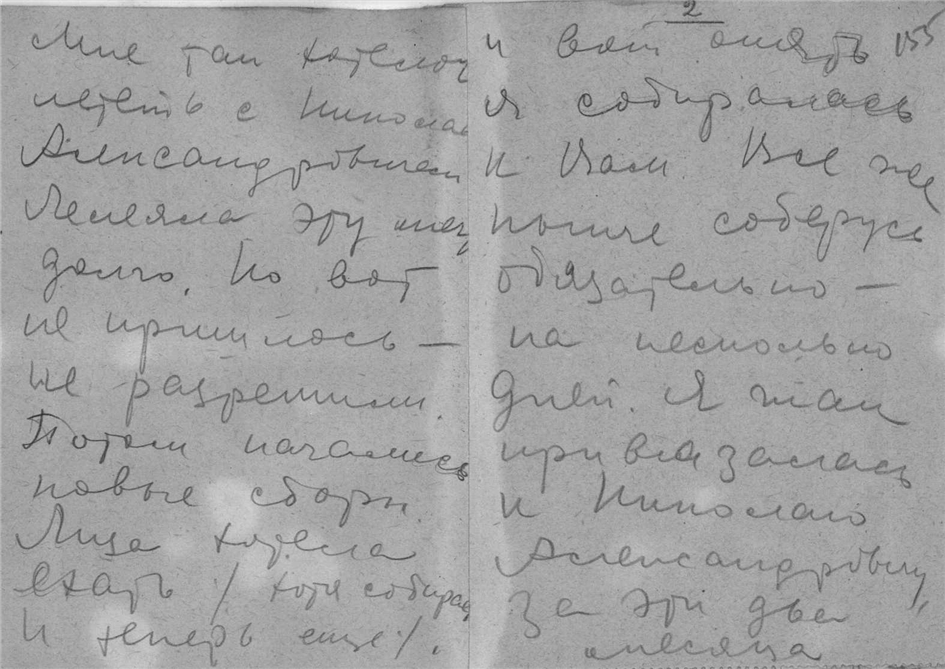 Мне так хотелось
лететь с Николаем
Александровичем
Лелеяла эту мечту
долго. Но вот
не пришлось —
не разрешили.
Потом начались
новые сборы.
Лиза хотела
ехать / хотя собирает
и теперь еще /.
2
155
и вот опять
я собиралась
к Вам. Все же
ныне соберусь
обязательно —
на несколько
дней. Я так
привязалась
к Николаю
Александровичу,
за эти два
месяца